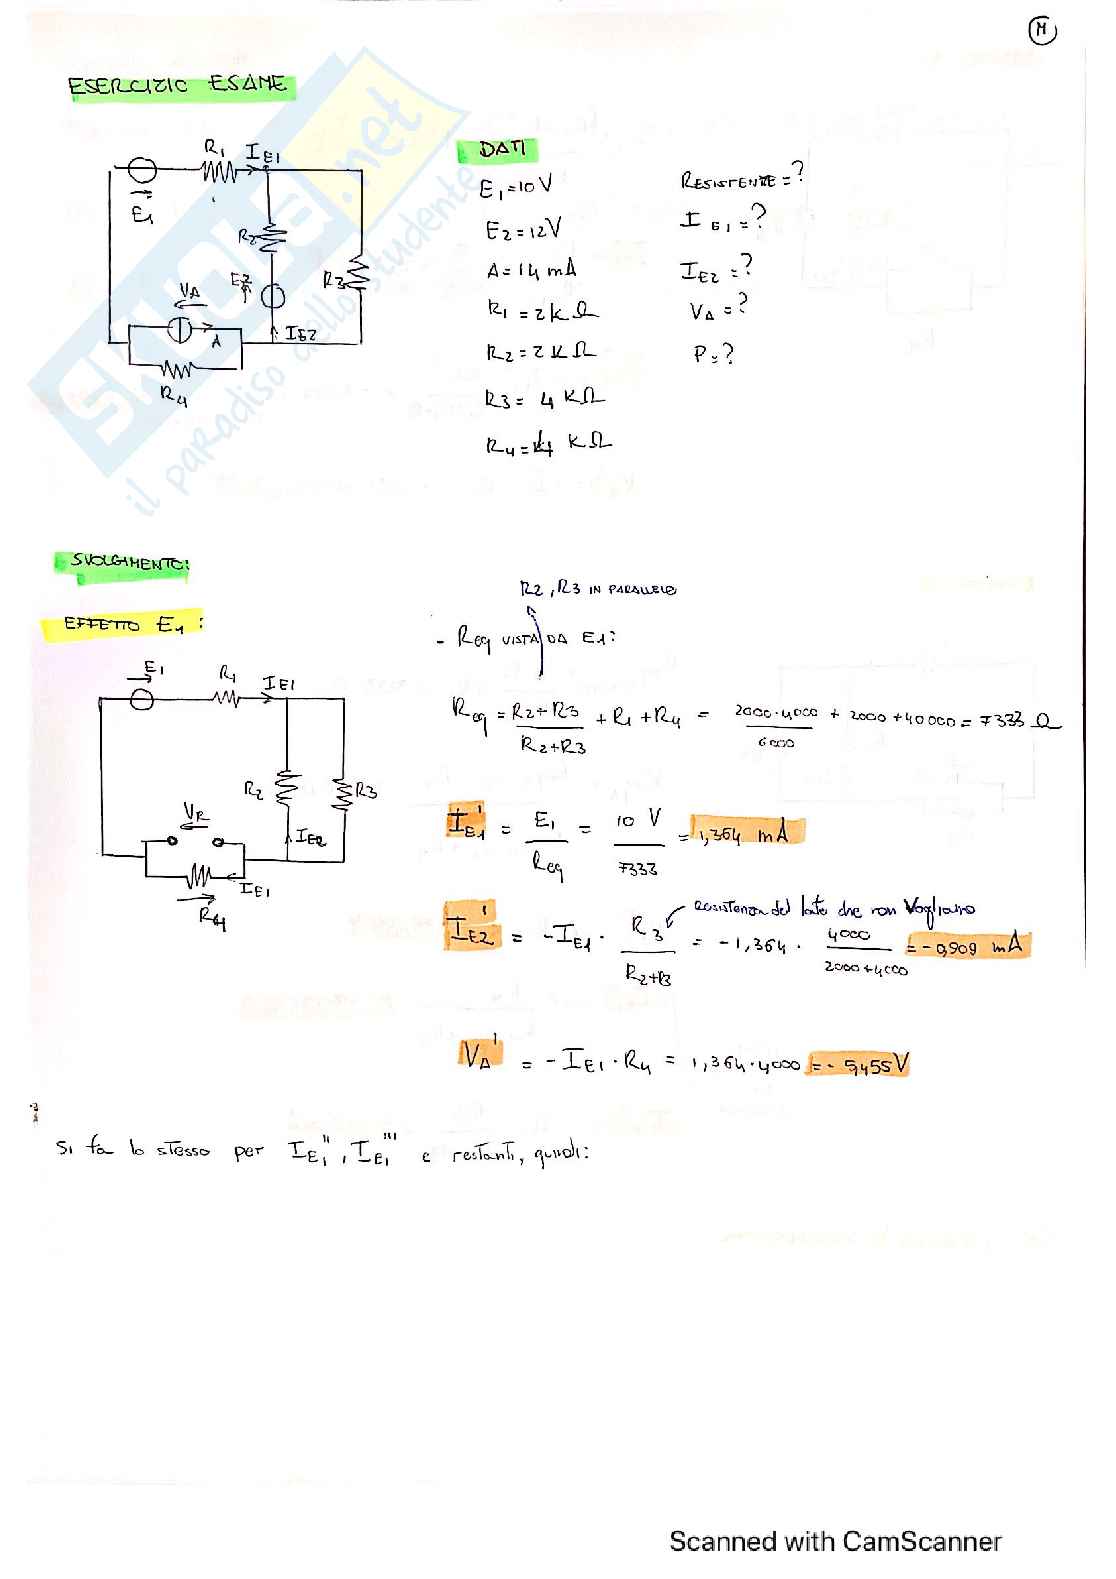 M
ESERCIZIO ESAME
R1 IE1
E1
R2
E2
R3
VA
A
IE2
R4
DATI
E1=10V
E2=12V
A=14 mA
R1=2kΩ
R2=2kΩ
R3= 4 KΩ
R4=4 KΩ
RESISTENZE=?
IE1=?
IE2=?
VA=?
P=?
SKUOLA.net
il paradiso dello studente
SVOLGIMENTO:
EFFETTO E1:
R2, R3 IN PARALLELO
- Req VISTA DA E1:
E1 R1 IE1
R2 R3
VR
IE2
IE1
R4
Req = R2+R3 / R2+R3 + R1 + R4 = 2000·4000 / 6000 + 2000 + 40000 = 7333 Ω
IE1' = E1 / Req = 10 V / 7333 = 1,364 mA
Resistenza del lato che non Vogliamo
IE2' = -IE1 · R3 / R2+R3 = -1,364 · 4000 / 2000+4000 = -0,909 mA
VA' = -IE1·R4 = 1,364·4000 = - 5,455V
Si fa lo stesso per IE1'', IE1''' e restanti, quindi:
Scanned with CamScanner